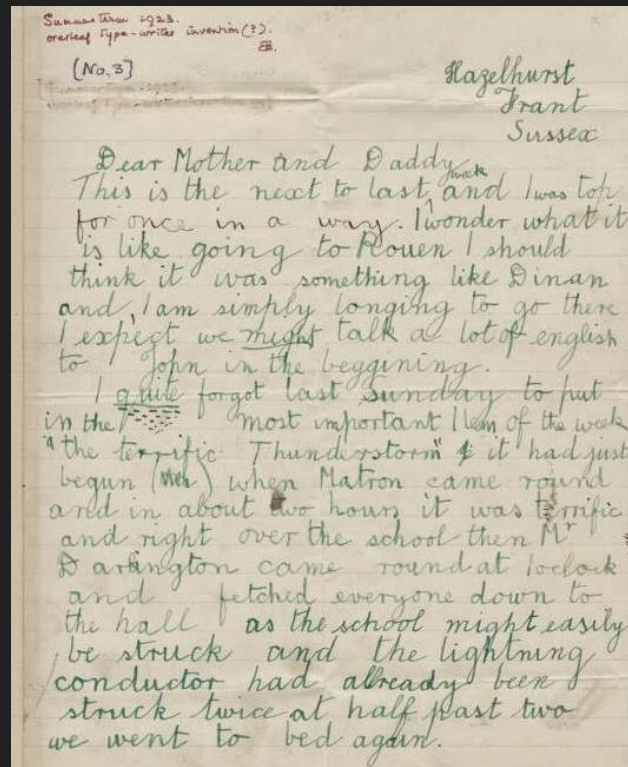 Summer term 1923.
overleaf Type-writer invention(?).
[No.3]
Hazelhurst
Frant
Sussex
Dear Mother and Daddy
week
This is the next to last and I was top
for once in a way. I wonder what it
is like going to Rouen I should
think it was something like Dinan
and, I am simply longing to go there
I expect we might talk a lot of english
to John in the beggining.
I quite forgot last sunday to put
in the most important Item of the week
"the terrific Thunderstorm" it had just
begun when Matron came round
and in about two hours it was terrific
and right over the school then Mr
Darlington came round at 1oclock
and fetched everyone down to
the hall as the school might easily
be struck and the lightning
conductor had already been
struck twice at half past two
we went to bed again.